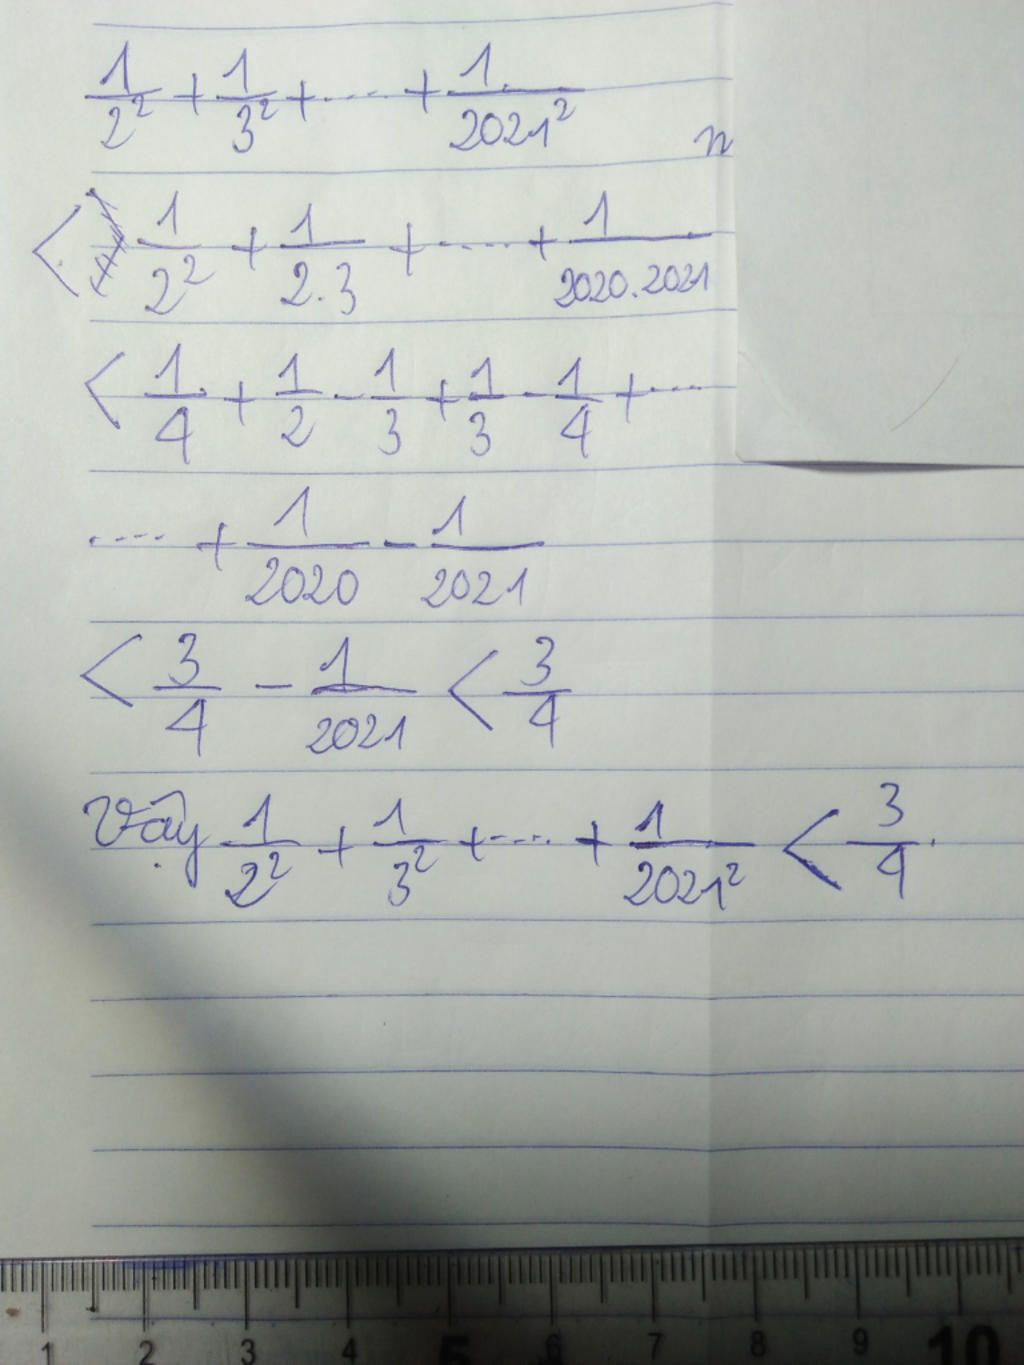 1/2² + 1/3² + ..... + 1/2021²
n
< 1/2² + 1/2.3 + ..... + 1/2020.2021
< 1/4 + 1/2 - 1/3 + 1/3 - 1/4 + ....
.... + 1/2020 - 1/2021
< 3/4 - 1/2021 < 3/4
Vậy 1/2² + 1/3² + .... + 1/2021² < 3/4.
1 2 3 4 5 6 7 8 9 10